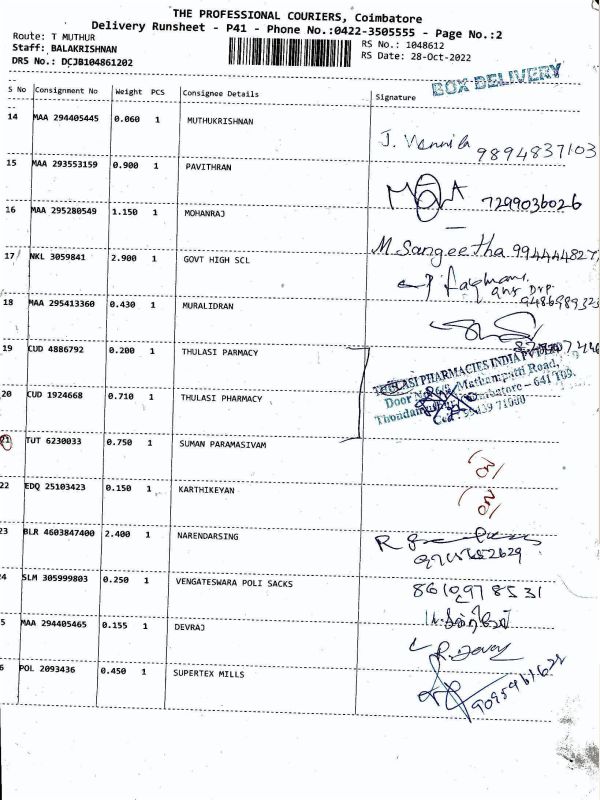 THE PROFESSIONAL COURIERS, Coimbatore
Delivery Runsheet - P41 - Phone No.:0422-3505555 - Page No.:2
Route: T MUTHUR
Staff: BALAKRISHNAN
RS No.: 1048612
DRS No.: DCJB104861202
RS Date: 28-Oct-2022
BOX DELIVERY
S No Consignment No Weight PCS Consignee Details Signature
14 MAA 294405445 0.060 1 MUTHUKRISHNAN
J. Vennila 9894837103
15 MAA 293553159 0.900 1 PAVITHRAN
7299036026
16 MAA 295280549 1.150 1 MOHANRAJ
M. Sangeetha
17 NKL 3059841 2.900 1 GOVT HIGH SCL
18 MAA 295413360 0.430 1 MURALIDRAN
19 CUD 4886792 0.200 1 THULASI PARMACY
THULASI PHARMACIES INDIA PVT
20 CUD 1924668 0.710 1 THULASI PHARMACY
Mathampatti Road,
Coimbatore - 641 109.
21 TUT 6230033 0.750 1 SUMAN PARAMASIVAM
22 EDQ 25103423 0.150 1 KARTHIKEYAN
23 BLR 4603847400 2.400 1 NARENDARSING
4 SLM 305999803 0.250 1 VENGATESWARA POLI SACKS
8610978531
5 MAA 294405465 0.155 1 DEVRAJ
6 POL 2093436 0.450 1 SUPERTEX MILLS